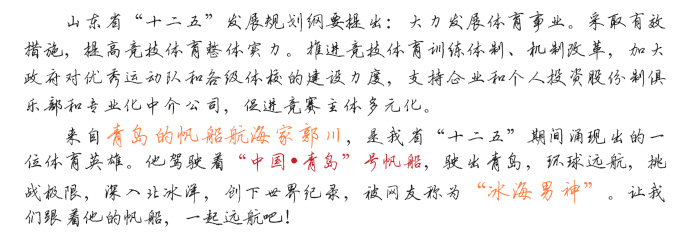 山东省“十二五”发展规划纲要提出：大力发展体育事业。采取有效
措施，提高竞技体育整体实力。推进竞技体育训练体制、机制改革，加大
政府对优秀运动队和各级体校的建设力度，支持企业和个人投资股份制俱
乐部和专业化中介公司，促进竞赛主体多元化。
来自青岛的帆船航海家郭川，是我省“十二五”期间涌现出的一
位体育英雄。他驾驶着“中国•青岛”号帆船，驶出青岛，环球远航，挑
战极限，深入北冰洋，创下世界纪录，被网友称为“冰海男神”。让我
们跟着他的帆船，一起远航吧！